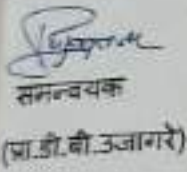 समन्वयक
(प्रा.डी.बी.उजागरे)